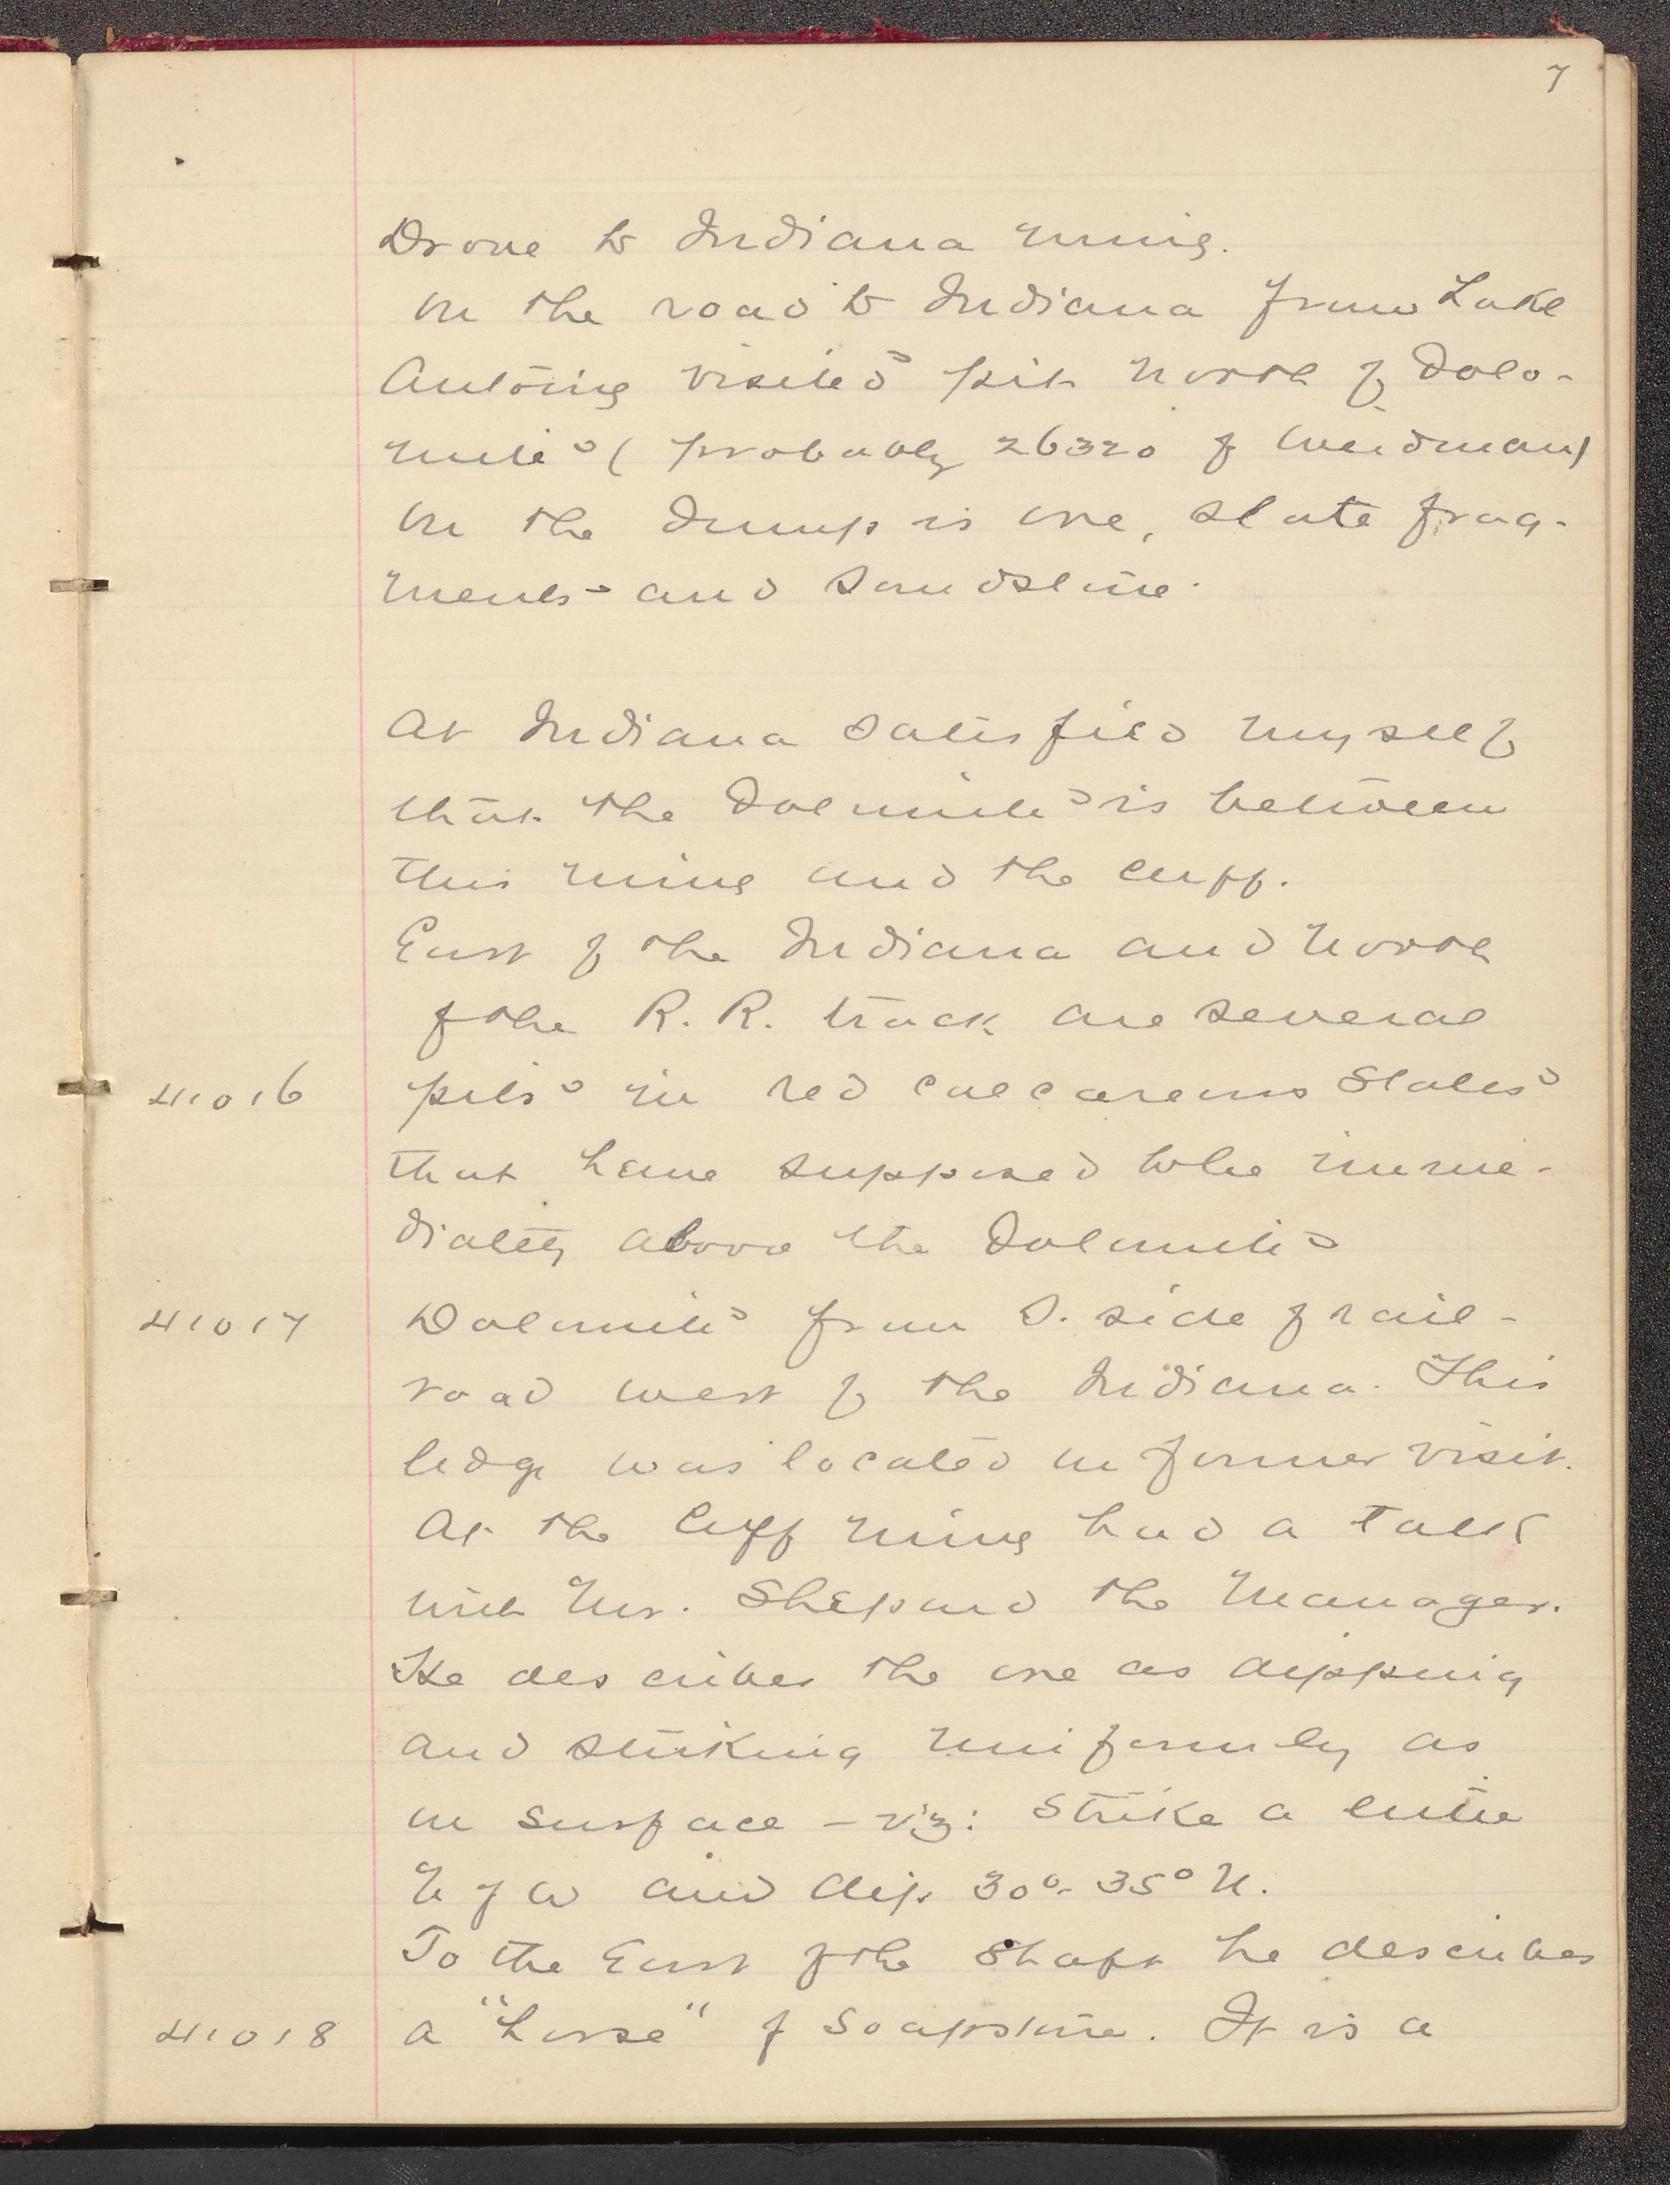 7
Drove to Indiana mine.
On the road to Indiana from Lake
Antoine visited pit north of dolo-
mite (probably 26320 of Weidman)
On the dump is ore, slate frag-
ments and sandstone.
At Indiana satisfied myself
that the dolomite is between
this mine and the Cuff.
East of the Indiana and north
of the R. R. track are several
41016 pits in red calcareous slates
that have supposed to be imme-
diately above the dolomite
41017 Dolomite from S. side of rail-
road west of the Indiana. This
ledge was located on former visit.
At the Cuff mine had a talk
with Mr. Shepard the Manager.
He describes the ore as dipping
and striking uniformly as
on surface - viz: Strike a little
N of W and dip 30°-35° N.
To the East of the Shaft he describes
41018 a "horse" of soapstone. It is a